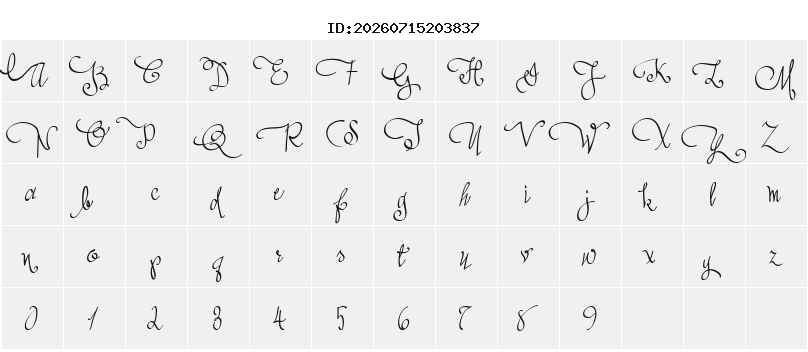 ID:20260715203837
A B C D E F G H I J K L M
N O P Q R S T U V W X Y Z
a b c d e f g h i j k l m
n o p q r s t u v w x y z
0 1 2 3 4 5 6 7 8 9